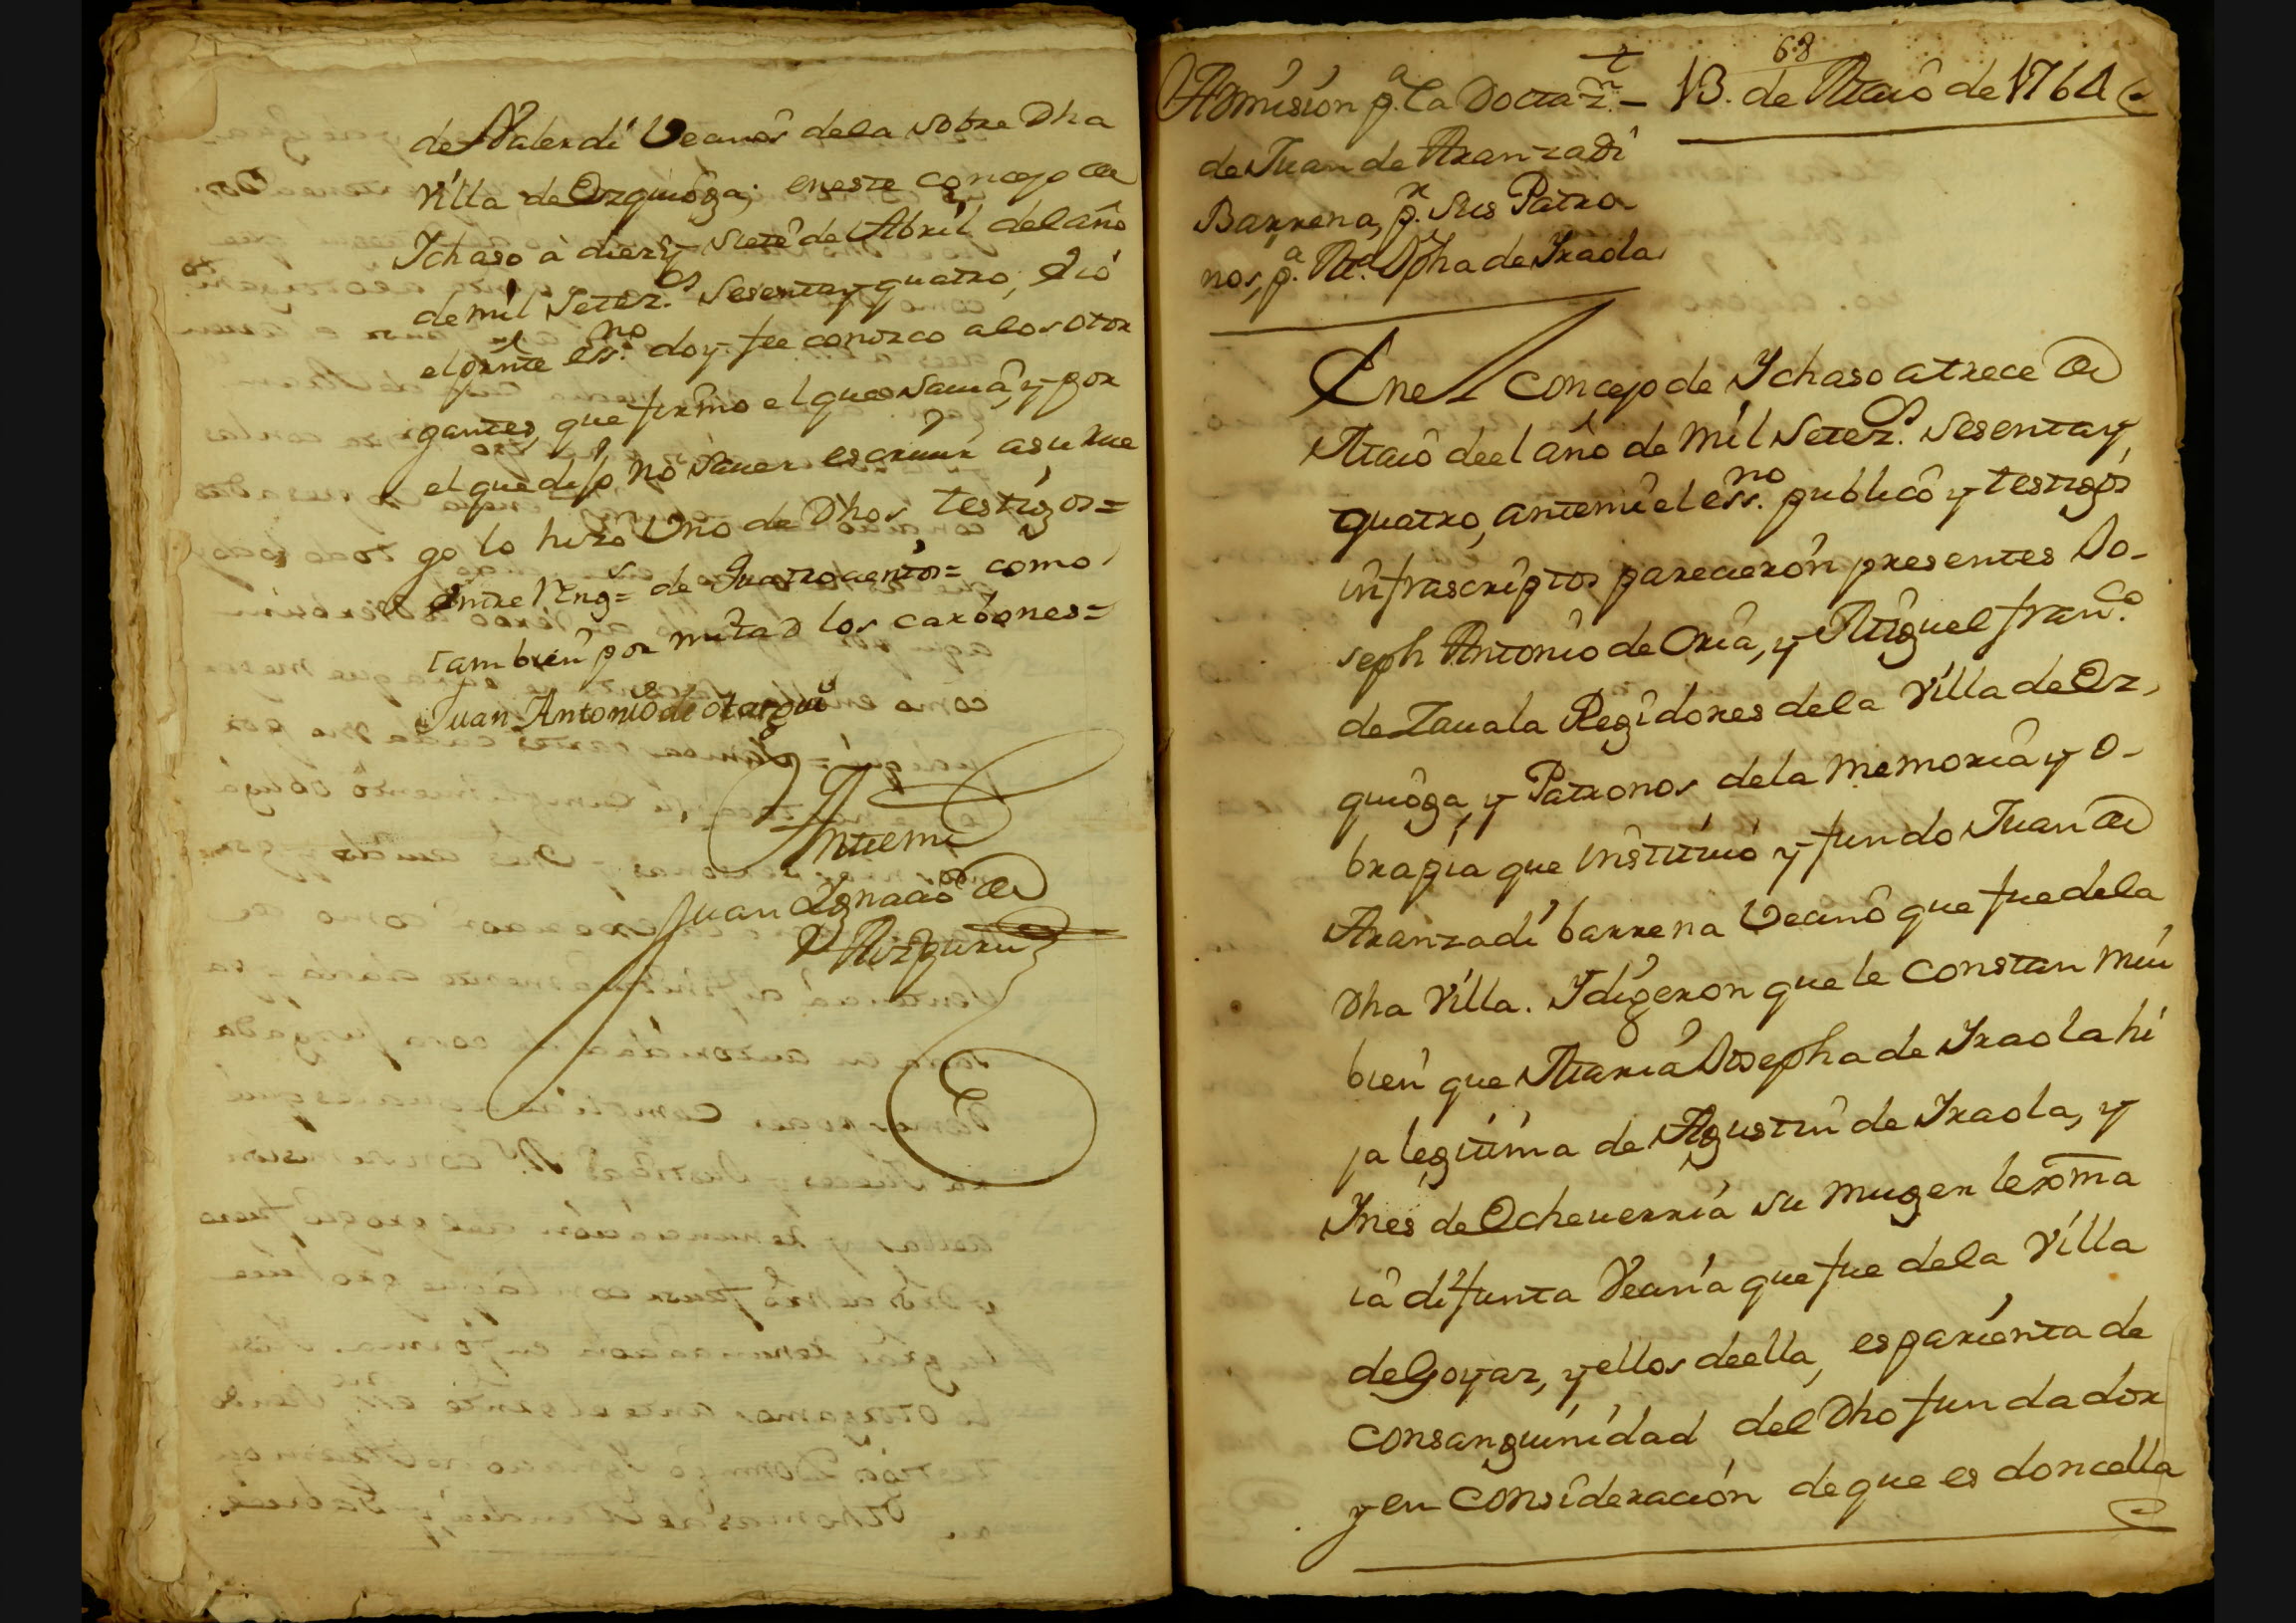 de Alverdi Vecinos dela sobre Dha
Villa de Ozquioga; eneste concejo de
Ichaso à diez y siete de Abril delaño
de mil Setez.os sesenta y quatro, è Yò
el press.te ess.no doy fee conozco alos otor
gantes, que firmo el que Savia, y por
el que dijo no saver escriuir asu rue
go lo hizo Uno de Dhos testigos=
entre Reng.s= de Quatrocientos= como
tambien por mitad los carbones=
Juan Antonio de otargui
Antemi
Juan Ignacio de
Aizpuru
68
Admision p.a la Dotaz.n - 13. de Maio de 1764
de Juan de Aranzadi
Barrena, p.r sus Patro
nos, p.a M.a Jpha de Yraola
En el concejo de Ychaso a trece de
Maio de el año de mil Setez.os sesenta y
quatro, antemi el ess.no publico y testigos
infrascriptos parecieron presentes Jo-
seph Antonio de Oria, y Miguel fran.co
de Zauala Regidores dela Villa de Oz
quioga, y Patronos dela memoria y o-
brapia que instituió y fundo Juan de
Aranzadi barrena Vecino que fue dela
Dha Villa. Y digeron que le constan mui
bien que Maria Josepha de Yraola hi
ja legitima de Agustin de Yraola, y
Ynes de Echeuerria su muger lexitma
ia difunta Vecina que fue dela Villa
de Goyaz, y ellos deella, es parienta de
consanguinidad del Dho fundador
y en consideracion de que es doncella